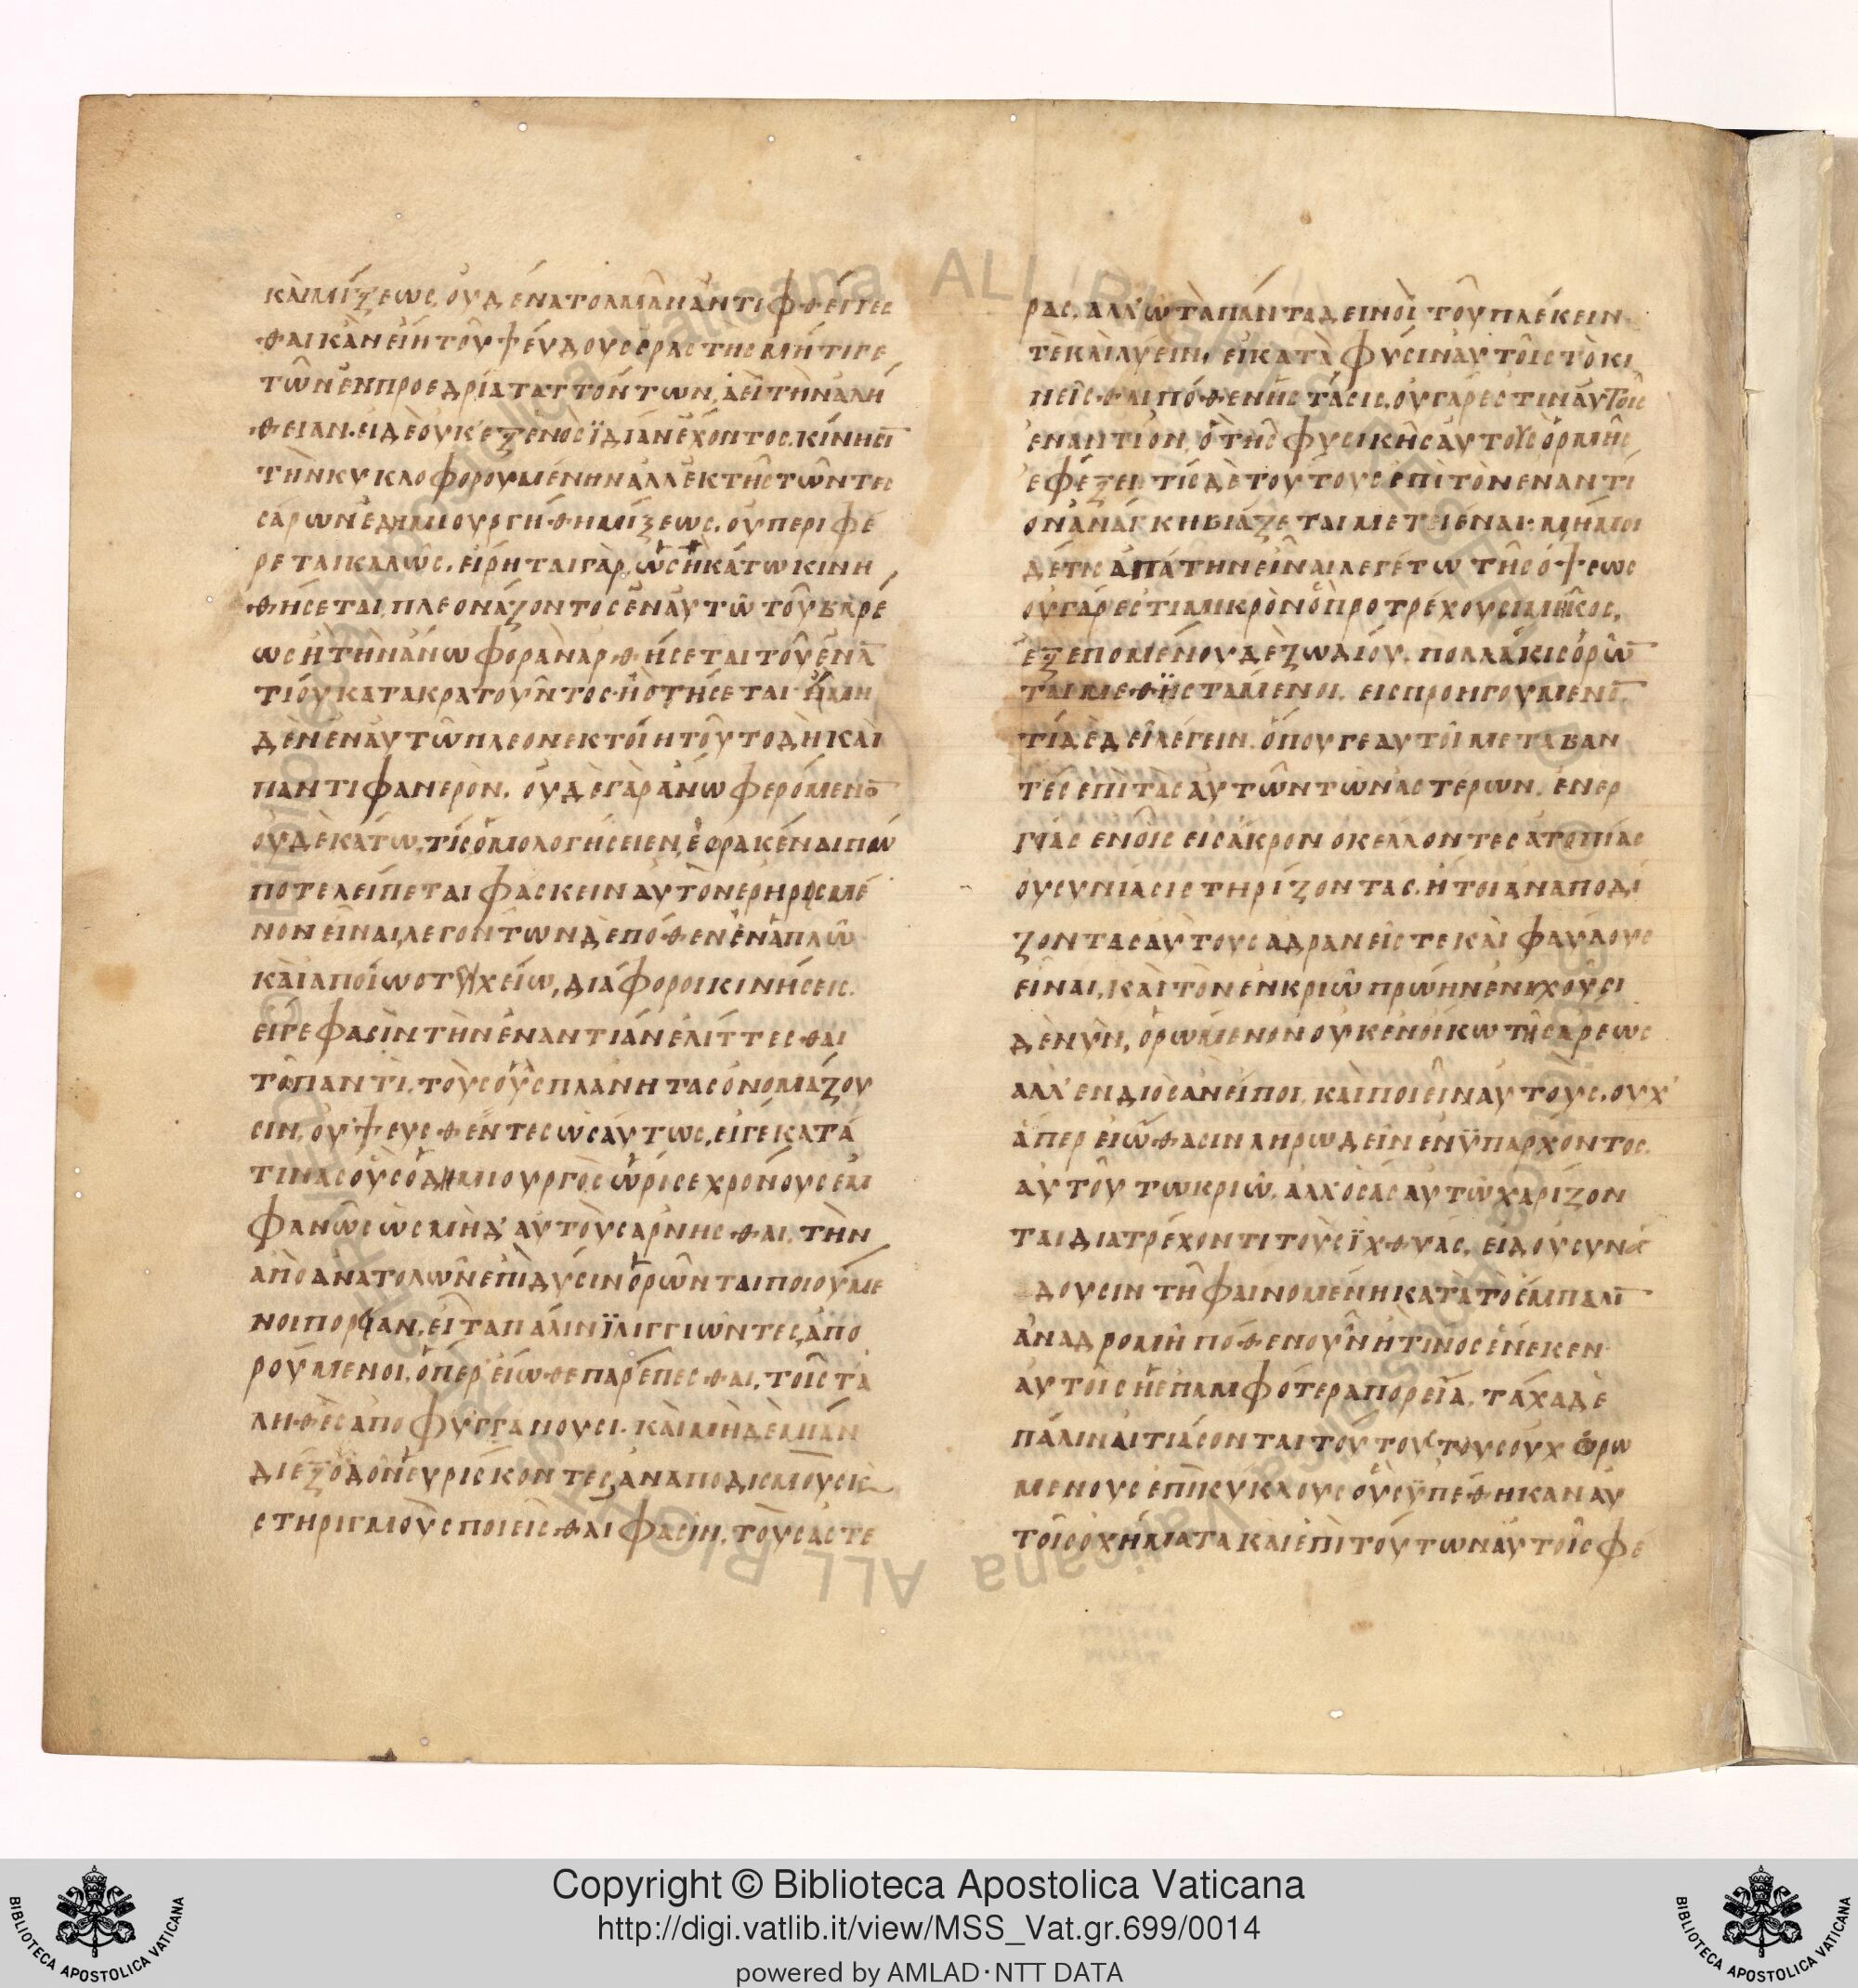 καὶ μίξεως, οὐδένα τολμᾶν ἀντιφθέγγεσ
θαι κἂν εἴη τοῦ ψεύδους ἐραστης μήτι γε
τῶν ἐν προεδρία ταττόντων, ἀεὶ τὴν ἀλή
θειαν. εἰ δὲ οὐκ ἐξ ἑνὸς ϊδίαν ἔχοντος κίνησῑ
τὴν κυκλοφορουμένην ἀλλ ἐκ τῆς τῶν τεσ
σάρων ἐδημιουργήθη μίξεως, οὐ περιφέ
ρεται καλῶς. εἴρηται γὰρ, ὡς ἢ κάτω κινη
θήσεται, πλεονάζοντος ἐν αὐτῶ τοῦ βαρέ
ως ἢ τὴν ἄνω φορὰν ἀρθήσεται τοῦ ἐνᾱ
τίου κατακρατοῦντος· ἢ στήσεται ἢ μη
δὲν ἐν αὐτῶ πλεονεκτοίη τοῦτο δὴ καὶ
παντὶ φανερὸν. οὐδὲ γὰρ ἄνω φερόμενο̄
οὐδὲ κάτω, τίς ὁμολογήσειεν, ἑορακέναι πώ
ποτε λείπεται φασκειν αὐτὸν ἐρηρισμέ
νον εἶναι, λεγόντων δὲ πόθεν ἐν ἁπλῶ
καὶ ἀποίω στυχείω, διάφοροι κινήσεις.
εἴγε φασὶν τὴν ἐναντίαν ἑλίττεσθαι
τῶ παντὶ, τοὺς οὓς πλάνητας ὀνομάζου
σιν, οὐ ψευσθέντες ὡσαύτως, εἴγε κατά
τινας οὓς ὁ δημιουργὸς ὥρισε χρόνους ἐμ
φανῶς ὡς μὴ δ' αὐτοὺς ἀρνῆσθαι, τὴν
ἀπὸ ἀνατολῶν ἐπὶ δύσιν ὁρῶνται ποιούμε
νοι πορείαν, εἶτα πάλιν ϊλιγγιῶντες, ἀπο
ρούμενοι, ὅπερ εἴωθε παρέπεσθαι, τοῖς τἀ
ληθὲς ἀποφυγγάνουσι. καὶ μὴ δὲ μιᾶν
διέξοδον εὑρίσκοντες, ἀναποδισμοὺς κ(αὶ)
στηριγμοὺς ποιεῖσθαι φασὶν, τοὺς ἀστέ
ρας, ἀλλ' ὦ τὰ πάντα δεινοὶ τοῦ πλέκειν
τὲ καὶ λύειν, εἰ κατὰ φύσιν αὐτοῖς τὸ κι
νεῖσθαι πόθεν ἡ στάσις, οὐ γάρ ἐστιν αὐτοῖς
ἐναντίον, ὃ τῆς φυσικῆς αὐτοὺς ὁρμῆς
ἐφέξει τίς δὲ τούτους ἐπὶ τὸν ἐναντί
ον ἀνάγκη βιάζεται μετειέναι: μή μοι
δέ τις ἀπάτην εἶναι λεγέτω τῆς ὄψεως
οὐ γάρ ἐστι μικρὸν ὃ προτρέχουσι μῆκος,
ἐξ ἑπομένου δὲ ζωδίου, πολλάκις ὁρῶ̄
ται μεθϊστάμενοι. εἰς προηγούμενο̄.
τί δὲ δεῖ λέγειν, ὅπου γε αυτοὶ μεταβάν
τες ἐπὶ τὰς αὐτῶν τῶν ἀστερων, ἐνερ
γείας ἐνίοις εἰς ἄκρον ὀκέλλοντες ἀτοπίας
οὓς υνιασι στηρίζοντας, ἤτοι ἀναποδί
ζοντας αὐτους ἀδρανεῖς τε καὶ φαύλους
εἶναι, καὶ τὸν ἐν κριῶ πρώην ἐνηχοῦσι
δὲ νῦν, ὁρώμενον οὐκ ἐν οἴκω τῆς ἄρεως
ἀλλ' ἐν διὸς ἂν εἴποι. καὶ ποιεῖν αὐτοὺς, οὐχ'
ἅπερ εἰώθασιν ληρωδεῖν ἐνϋπάρχοντος.
αὐτοῦ τῶ κριῶ, ἀλλ' ὅσας αὐτῶ χαρίζον
ται διατρέχοντι τοὺς ϊχθύας, εἰ δ' οὐ συνά
δουσιν τῆ φαινομένη κατὰ τὸ ἔμπαλῑ
ἀναδρομῆ πόθεν οὖν ἢ τίνος ἕνεκεν
αὐτοῖς ἡ ἐπαμφότερα πορεία. τάχα δὲ
πάλιν αἰτιάσονται τούτου τοὺς οὐχ ὁρω
μένους ἐπικύκλους οὓς ϋπέθηκαν αὐ
τοῖς ὀχήματα καὶ ἐπὶ τούτων αὐτοῖς φέ
Copyright © Biblioteca Apostolica Vaticana
http://digi.vatlib.it/view/MSS_Vat.gr.699/0014
powered by AMLAD·NTT DATA
BIBLIOTECA APOSTOLICA VATICANA
BIBLIOTECA APOSTOLICA VATICANA